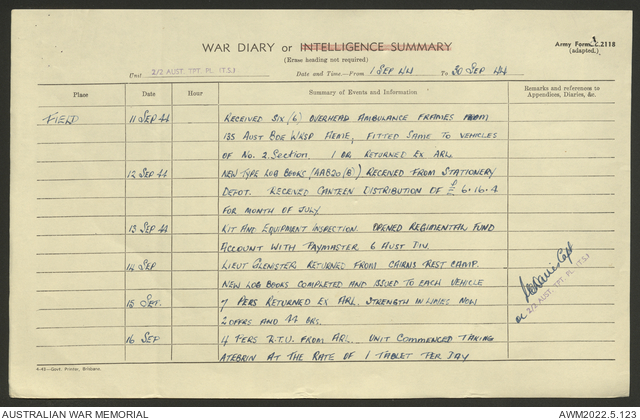 WAR DIARY or INTELLIGENCE SUMMARY
(Erase heading not required)
Army Form C.2118
(adapted.)
Unit 2/2 AUST. TPT. PL. (T.S.) Date and Time.—From 1 SEP 44 To 30 SEP 44
Place Date Hour Summary of Events and Information Remarks and references to Appendices, Diaries, &c.
FIELD 11 SEP 44 RECEIVED SIX (6) OVERHEAD AMBULANCE FRAMES FROM
135 AUST BDE WKSP AEME, FITTED SAME TO VEHICLES
OF NO. 2 SECTION. 1 OR RETURNED EX ARL
12 SEP 44 NEW TYPE LOG BOOKS (AAB20(B)) RECEIVED FROM STATIONERY
DEPOT. RECEIVED CANTEEN DISTRIBUTION OF £ 6.16.4
FOR MONTH OF JULY
13 SEP 44 KIT AND EQUIPMENT INSPECTION. OPENED REGIMENTAL FUND
ACCOUNT WITH PAYMASTER 6 AUST DIV.
14 SEP LIEUT GLENISTER RETURNED FROM CAIRNS REST CAMP.
NEW LOG BOOKS COMPLETED AND ISSUED TO EACH VEHICLE
15 SEP. 7 PERS RETURNED EX ARL. STRENGTH IN LINES NOW
2 OFFRS AND 44 ORS.
16 SEP 4 PERS R.T.U. FROM ARL. UNIT COMMENCED TAKING
ATEBRIN AT THE RATE OF 1 TABLET PER DAY
Capt
OC 2/2 AUST. TPT. PL. (T.S.)
4-43—Govt. Printer, Brisbane.
AUSTRALIAN WAR MEMORIAL AWM2022.5.123